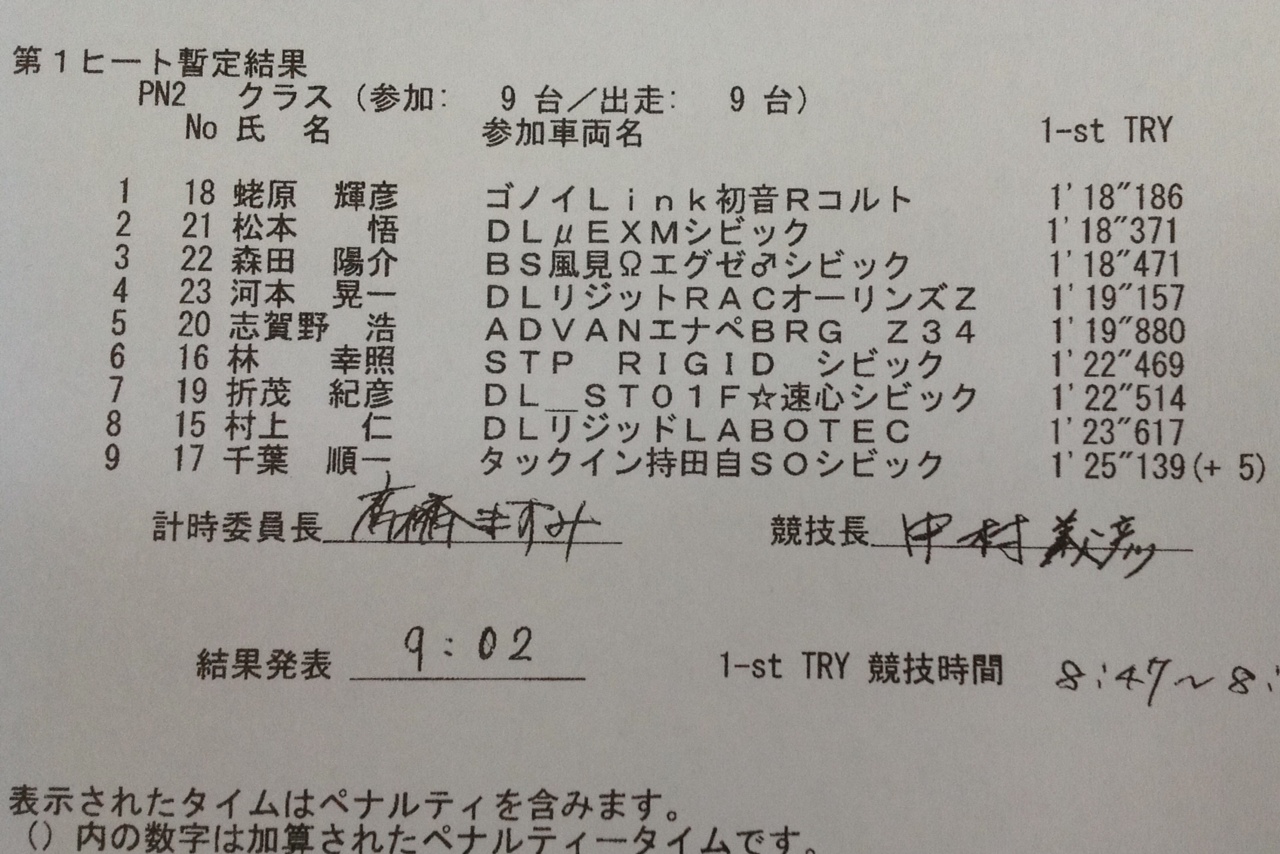 第１ヒート暫定結果
PN2 クラス（参加: 9 台／出走: 9 台）
No 氏 名 参加車両名 1-st TRY
1 18 蛯原 輝彦 ゴノイＬｉｎｋ初音Ｒコルト 1'18″186
2 21 松本 悟 ＤＬμＥＸＭシビック 1'18″371
3 22 森田 陽介 ＢＳ風見Ωエグゼ♂シビック 1'18″471
4 23 河本 晃一 ＤＬリジットＲＡＣオーリンズＺ 1'19″157
5 20 志賀野 浩 ＡＤＶＡＮエナペＢＲＧ Ｚ３４ 1'19″880
6 16 林 幸照 ＳＴＰ ＲＩＧＩＤ シビック 1'22″469
7 19 折茂 紀彦 ＤＬ＿ＳＴ０１Ｆ☆速心シビック 1'22″514
8 15 村上 仁 ＤＬリジッドＬＡＢＯＴＥＣ 1'23″617
9 17 千葉 順一 タックイン持田自ＳＯシビック 1'25″139(+ 5)
計時委員長 高橋ますみ 競技長 中村義彦
結果発表 9:02 1-st TRY 競技時間 8:47〜8:
表示されたタイムはペナルティを含みます。
（）内の数字は加算されたペナルティータイムです。